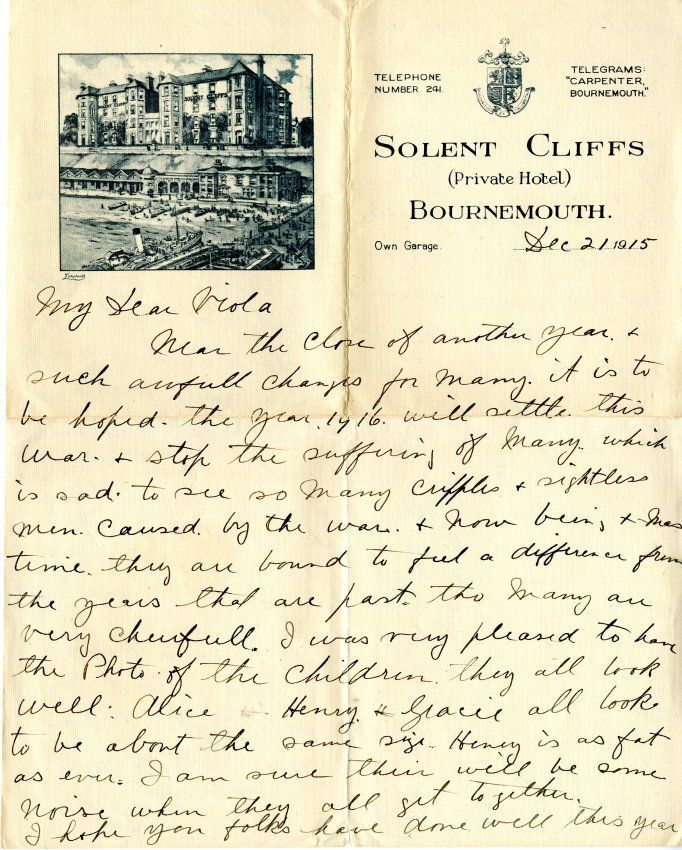 SOLENT CLIFFS
TELEPHONE
NUMBER 241.
TELEGRAMS:
"CARPENTER,
BOURNEMOUTH."
SOLENT CLIFFS
(Private Hotel)
BOURNEMOUTH.
Own Garage.
Dec 21 1915
My Dear Viola
Near the close of another year. +
such awfull changes for many. it is to
be hoped. the year. 1916. will settle. this
war. + stop the suffering of many. which
is sad. to see so many cripples + sightless
men. caused. by the war. + now being + Mas
time. they are bound to feel a difference from
the years that are past. tho many are
very cheerfull. I was very pleased to have
the Photo of the children. they all look
well. Alice - Henry. + Gracie all look
to be about the same size. Henry is as fat
as ever. I am sure their will be some
noise when they all get together.
I hope you folks have done well this year